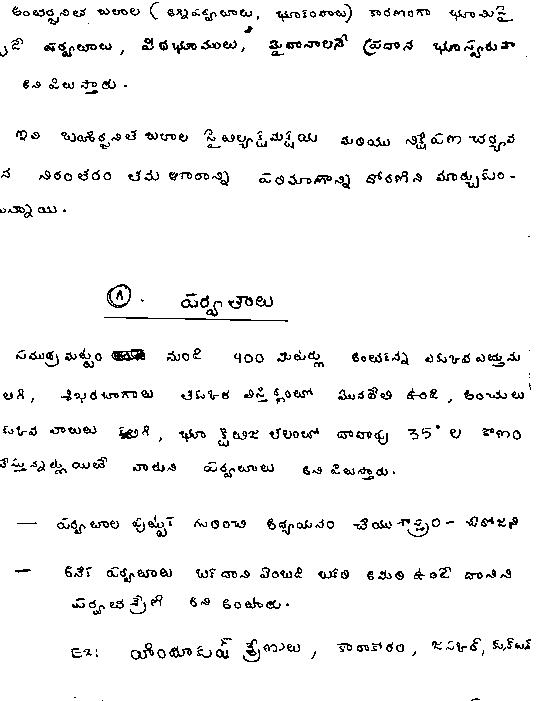 అంతర్జనిత బలాల ( అగ్నిపర్వతాలు, భూకంపాలు) కారణంగా భూమిపై
పర్వతాలు, పీఠభూములు, మైదానాలనే ప్రధాన భూస్వరూపా
అని పిలుస్తారు.
ఇవి బహిర్జనిత బలాల మరియు నిక్షేపణ చర్యల
న నిరంతరం తమ ఆకారాన్ని పరిమాణాన్ని మార్చుకుం-
టున్నాయి.
① . పర్వతాలు
సముద్ర మట్టం నుండి 900 మీటర్లు కంటే ఎక్కువ ఎత్తును
కలిగి, శిఖరభాగాలు తక్కువ విస్తీర్ణంలో మొనదేలి ఉండి, అంచులు
ఎక్కువ వాలులు కలిగి, భూ క్షితిజ తలంలో దాదాపు 35° ల కోణం
చేస్తున్నట్లయితే వాటిని పర్వతాలు అని పిలుస్తారు.
— పర్వతాల పుట్టుక గురించి అధ్యయనం చేయు శాస్త్రం - ఓరోజెని
— అనేక పర్వతాలు ఒకదాని వెంబడి ఒకటి అమరి ఉంటే దానిని
పర్వత శ్రేణి అని అంటారు.
Ex: హిమాలయ శ్రేణులు, కారాకోరం,